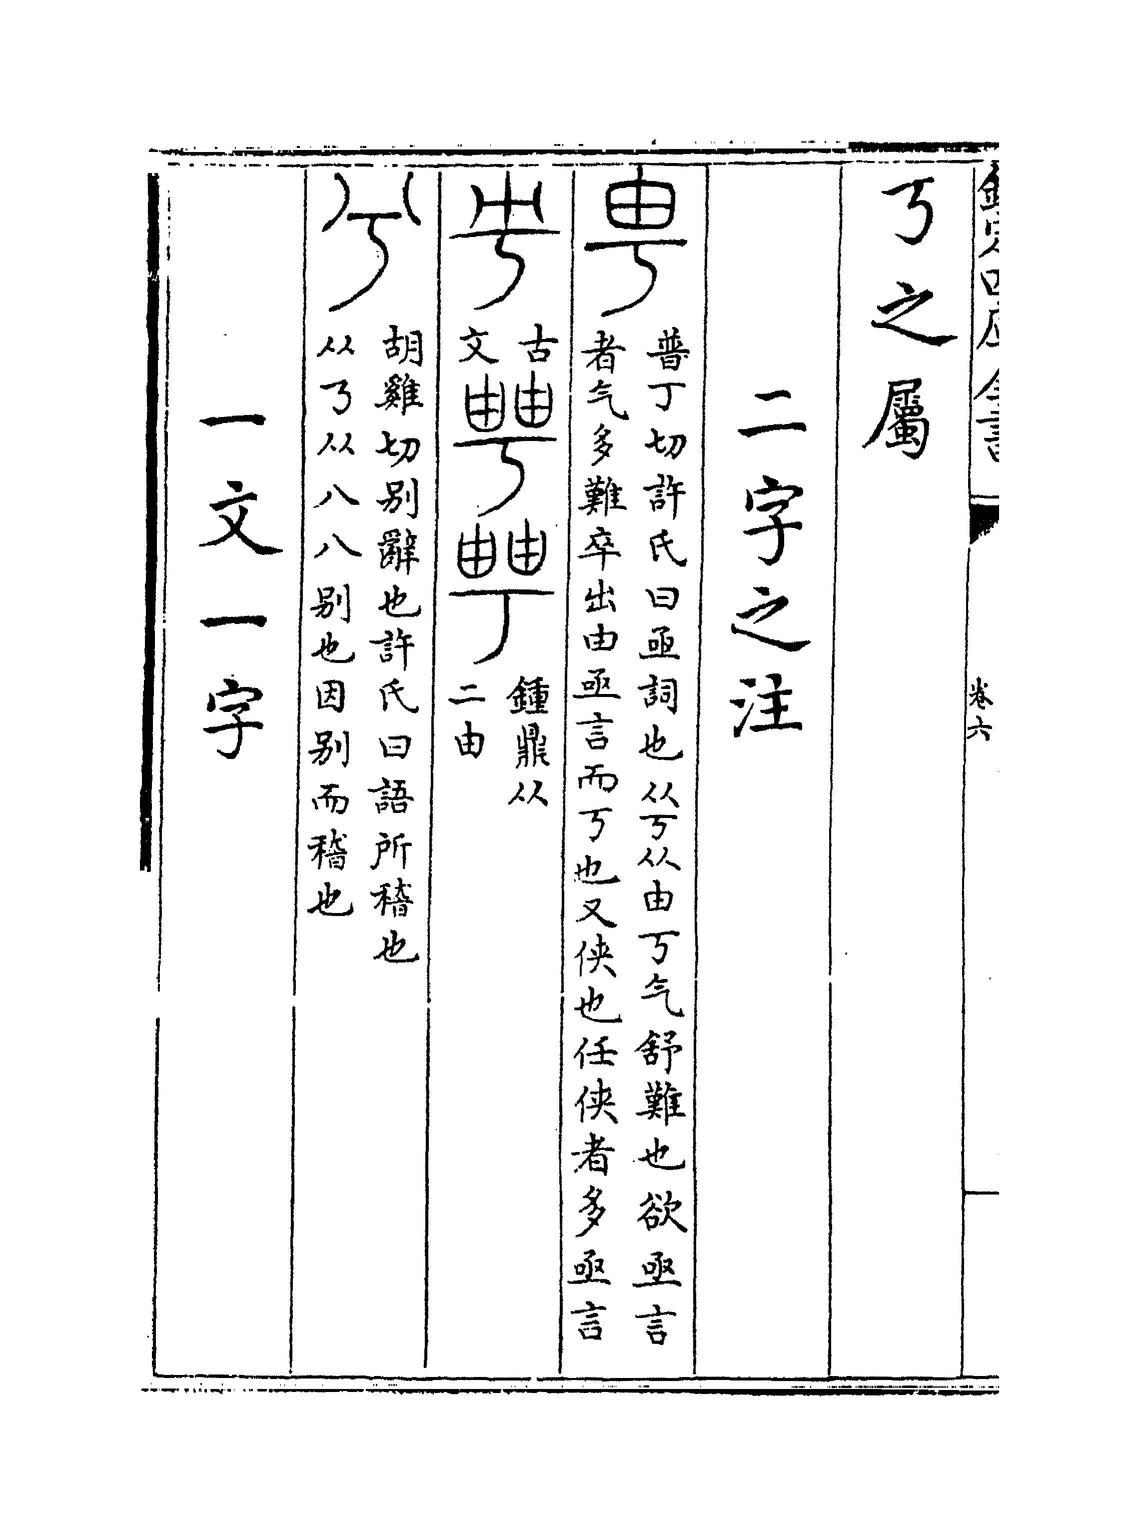 欽定四庫全書
卷六
丂之屬
二字之注
甹
普丁切許氏曰亟詞也从丂从由丂气舒難也欲亟言
者气多難卒出由亟言而丂也又俠也任俠者多亟言
古
文
鍾鼎从
二由
兮
胡雞切別辭也許氏曰語所稽也
从丂从八八別也因別而稽也
一文一字